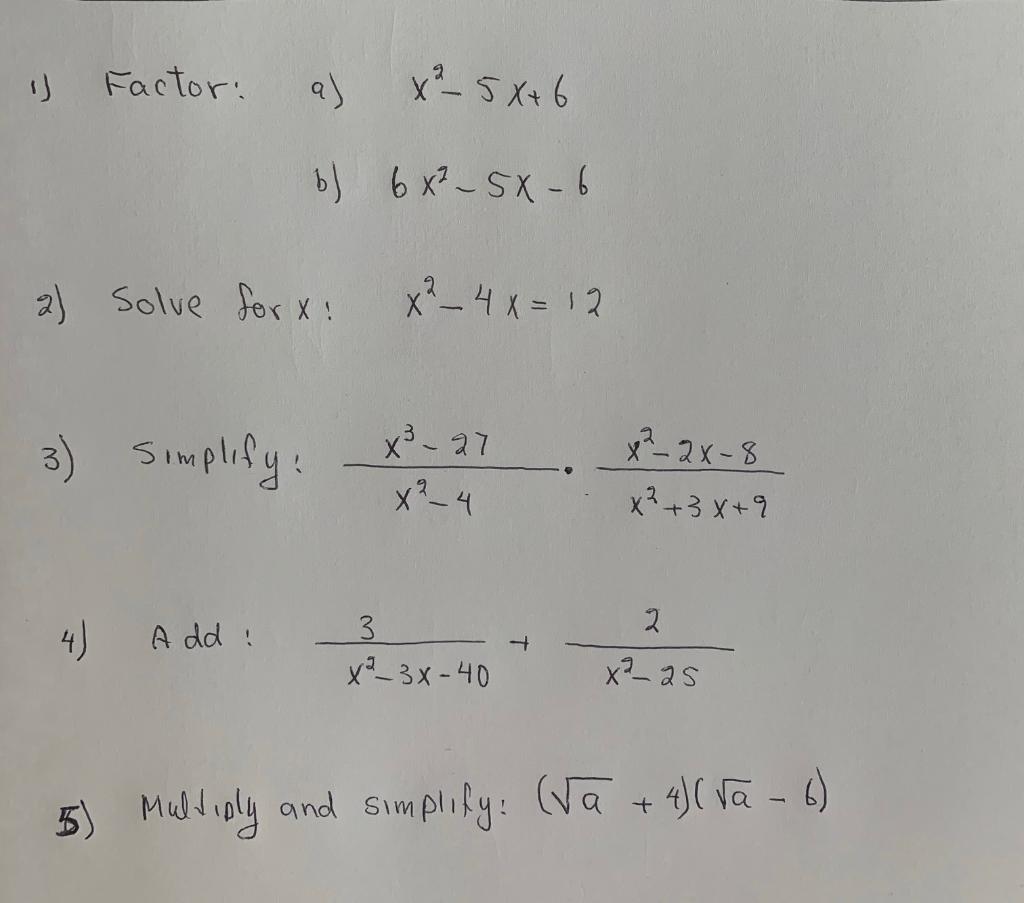 1) Factor: a) x² - 5x + 6
b) 6x² - 5x - 6
2) Solve for x: x² - 4x = 12
3) Simplify: (x³ - 27)/(x² - 4) · (x² - 2x - 8)/(x² + 3x + 9)
4) Add: 3/(x² - 3x - 40) + 2/(x² - 25)
5) Multiply and simplify: (√a + 4)(√a - 6)